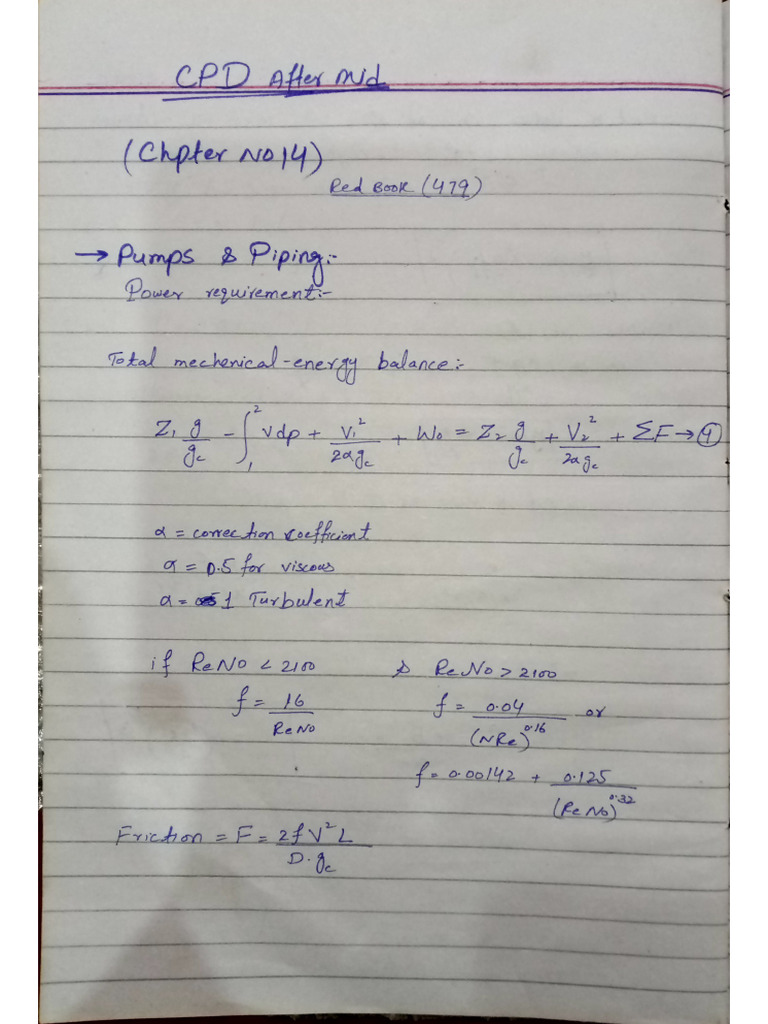 CPD After mid
(Chpter No 14)
Red Book (479)
→ Pumps & Piping:-
Power requirement:-
Total mechenical-energy balance:-
Z₁ g/gc - ∫₁² vdp + V₁²/2αgc + W₀ = Z₂ g/gc + V₂²/2αgc + ΣF → ①
α = correction coefficient
α = 0.5 for viscous
α = 1 Turbulent
if ReNo < 2100 & ReNo > 2100
f = 16/ReNo f = 0.04/(NRe)^0.16 or
f = 0.00142 + 0.125/(ReNo)^0.32
Friction = F = 2fV²L/D.gc